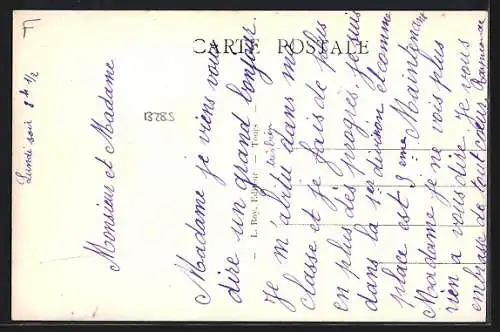 CARTE POSTALE
Lundi soir 8h 1/2
Monsieur et Madame
Madame je viens vous
dire un grand bonjour.
Je m'abitu dans ma
classe et je fais de plus
en plus des progrès. je suis
dans la 1er division et comme
place est 3 eme. Maintenant
Madame je ne vois plus
rien a vous dire. Je vous
embrasse de tout cœur. Raymonde
L. Roy, Editeur — Tours
13285